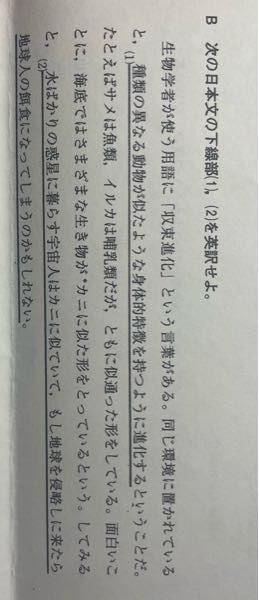 B 次の日本文の下線部(1), (2)を英訳せよ。
生物学者が使う用語に「収束進化」という言葉がある。同じ環境に置かれている
と, (1)種類の異なる動物が似たような身体的特徴を持つように進化するということだ。
たとえばサメは魚類, イルカは哺乳類だが, ともに似通った形をしている。面白いこ
とに, 海底ではさまざまな生き物が*カニに似た形をとっているという。してみる
と, (2)水ばかりの惑星に暮らす宇宙人はカニに似ていて, もし地球を侵略しに来たら
地球人の餌食になってしまうのかもしれない。